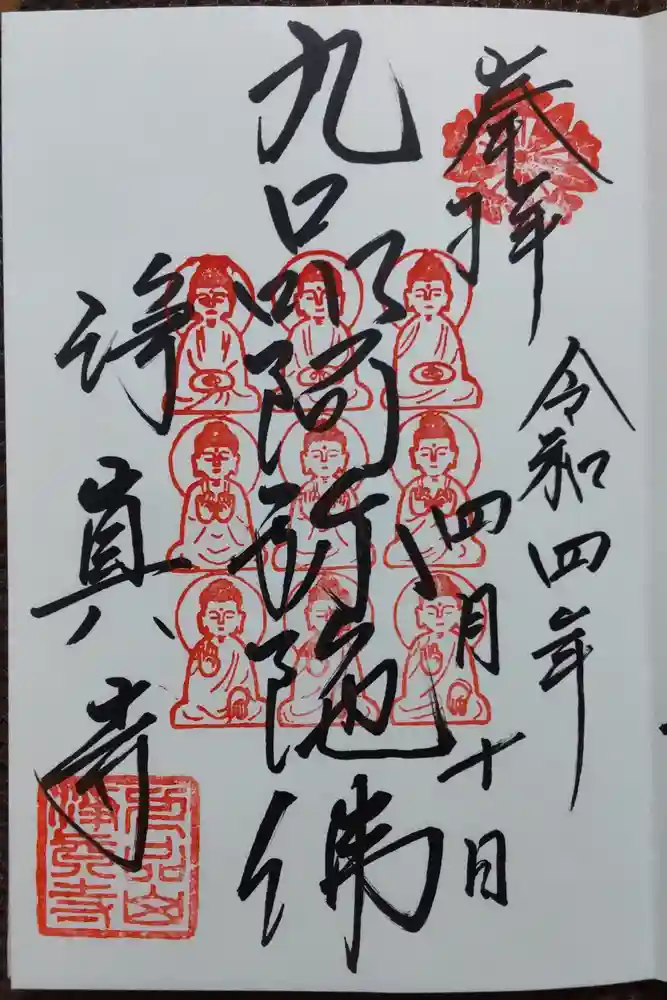 奉拝
令和四年
四月十日
九品阿弥陀佛
浄真寺
九品山
浄真寺